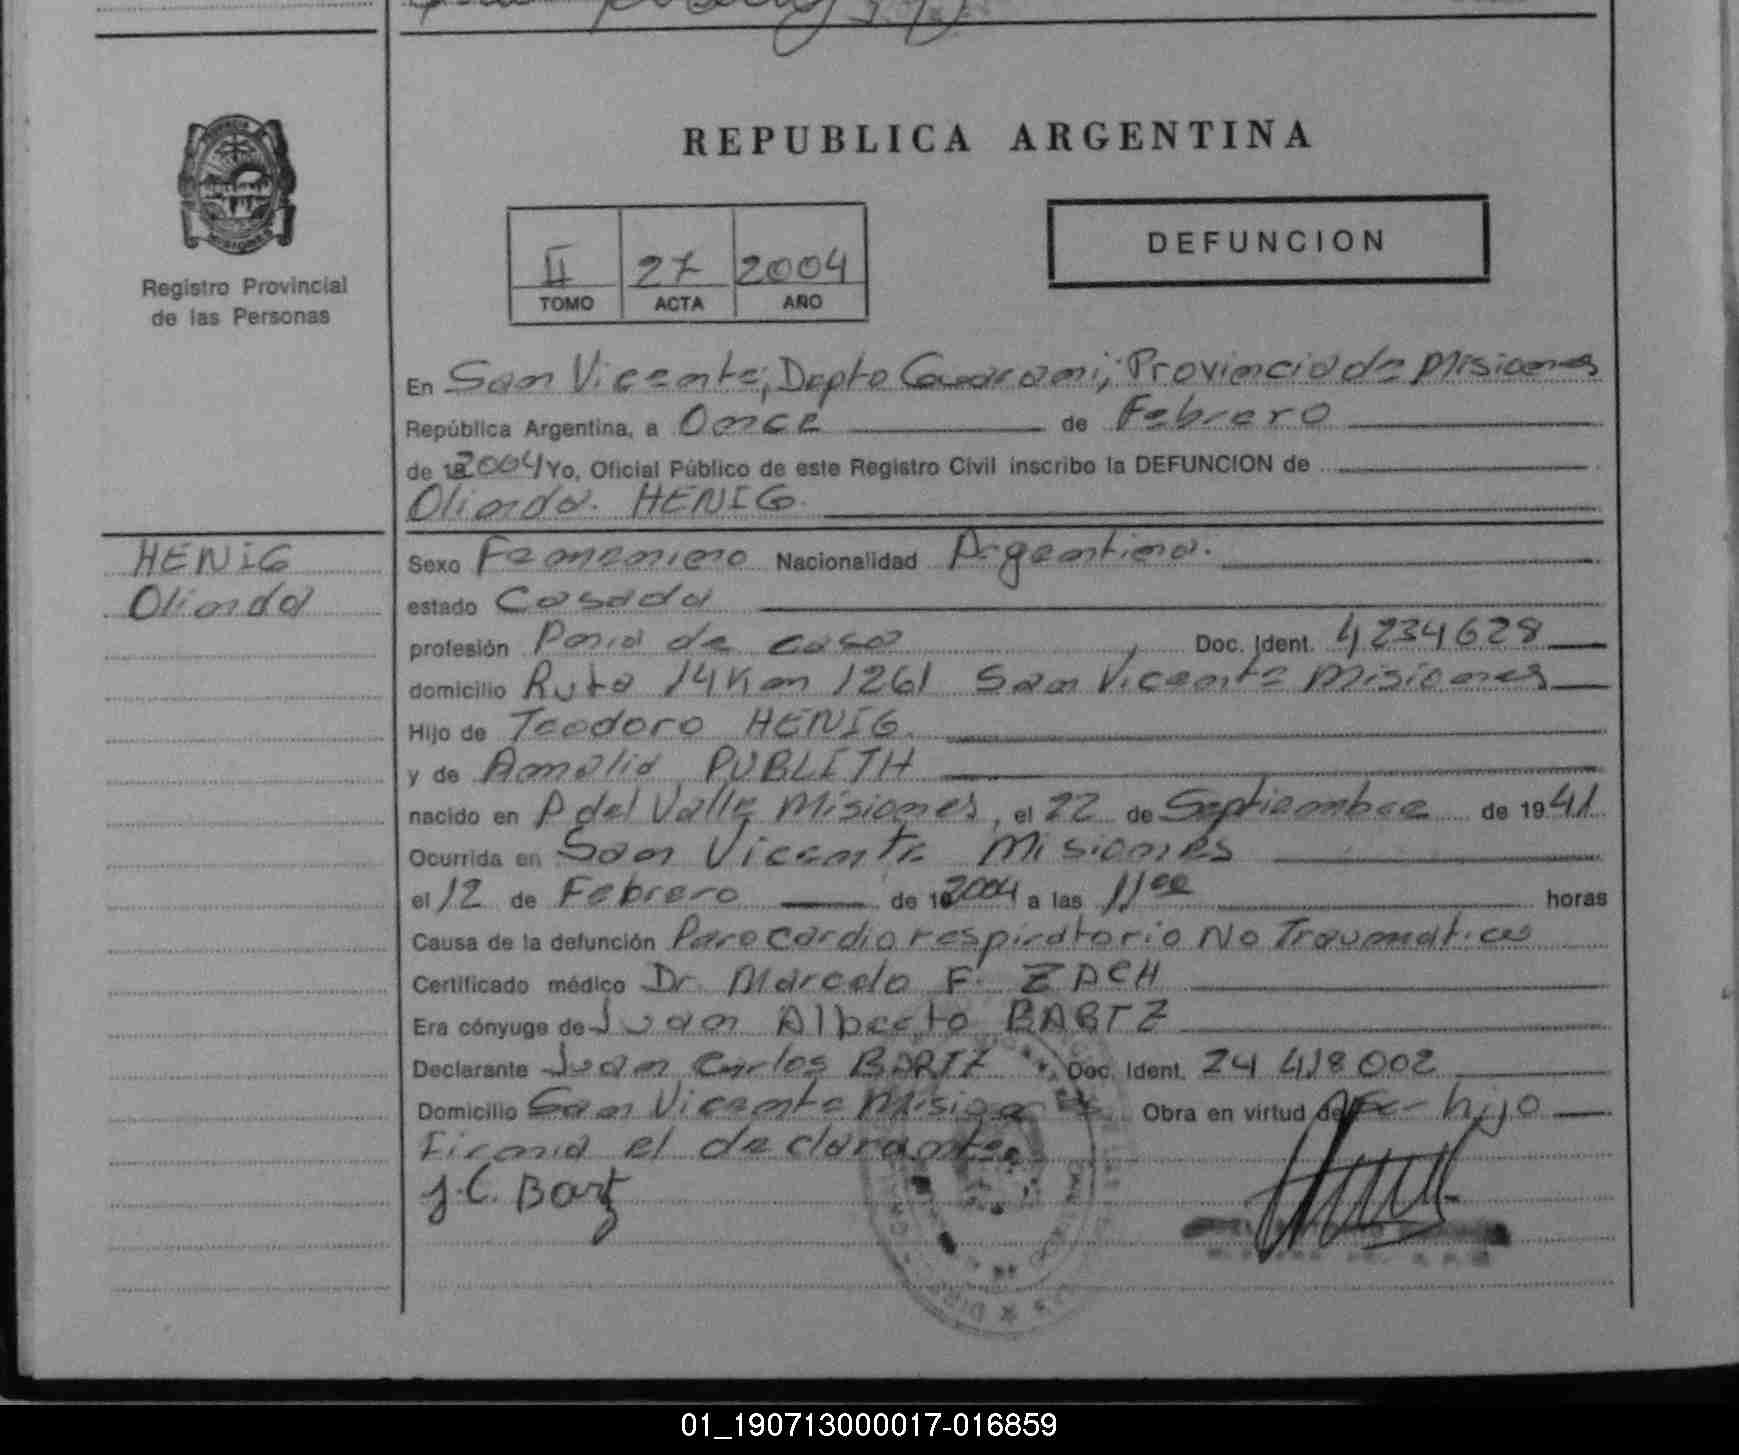 REPUBLICA ARGENTINA
Registro Provincial
de las Personas
II 27 2004
TOMO ACTA AÑO
DEFUNCION
En San Vicente, Depto Guarani, Provincia de Misiones
República Argentina, a Once de Febrero
de 192004 Yo, Oficial Público de este Registro Civil inscribo la DEFUNCION de
Olinda. HENIG.
HENIG
Olinda
Sexo Femenino Nacionalidad Argentina.
estado Casada
profesión de casa Doc. Ident. 4234628
domicilio Ruta 14 Km 1261 San Vicente Misiones
Hijo de Teodoro HENIG.
y de Amalia PUBLITH
nacido en P del Valle Misiones, el 22 de Septiembre de 1941.
Ocurrida en San Vicente Misiones
el 12 de Febrero de 192004 a las 11 horas
Causa de la defunción Paro cardio respiratorio No Traumatico
Certificado médico Dr. Marcelo F. ZACH
Era cónyuge de Juan Alberto BARTZ
Declarante Juan Carlos BARTZ Doc. Ident. 24 418 002
Domicilio San Vicente Obra en virtud de hijo
Firma el declarante.
J.C. Bartz
01_190713000017-016859